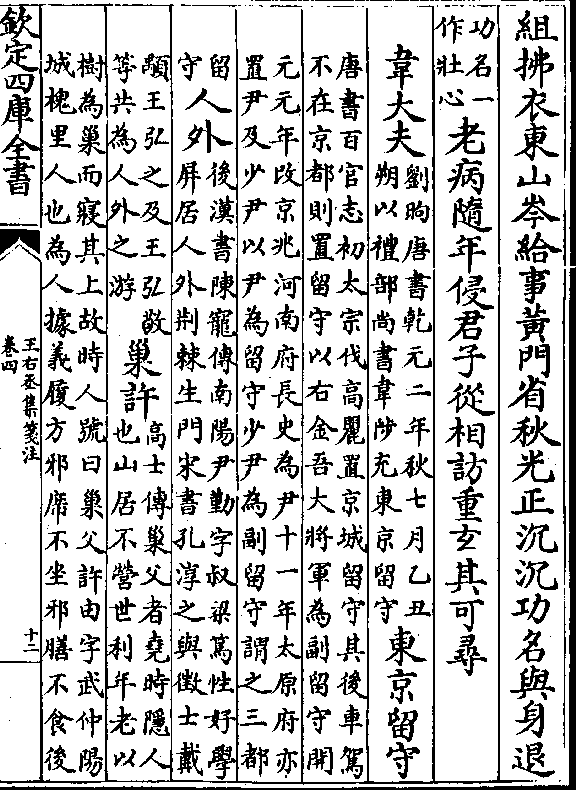 組拂衣東山岑給事黄門省秋光正沉沉功名與身退
功名一
作壯心
老病隨年侵君子從相訪重玄其可尋
韋大夫
劉昫唐書乾元二年秋七月乙丑
朔以禮部尚書韋陟充東京留守
東京留守
唐書百官志初太宗伐高麗置京城留守其後車駕
不在京都則置留守以右金吾大將軍為副留守開
元元年改京兆河南府長史為尹十一年太原府亦
置尹及少尹以尹為留守少尹為副留守謂之三都
留
守
人外
後漢書陳寵傳南陽尹勤字叔梁篤性好學
屏居人外荆棘生門宋書孔淳之與徵士戴
顒王弘之及王弘敬
等共為人外之游
巢許
高士傳巢父者堯時隱人
也山居不營世利年老以
樹為巢而寢其上故時人號曰巢父許由字武仲陽
城槐里人也為人據義履方邪席不坐邪膳不食後
欽定四庫全書
王右丞集箋注
卷四
十二